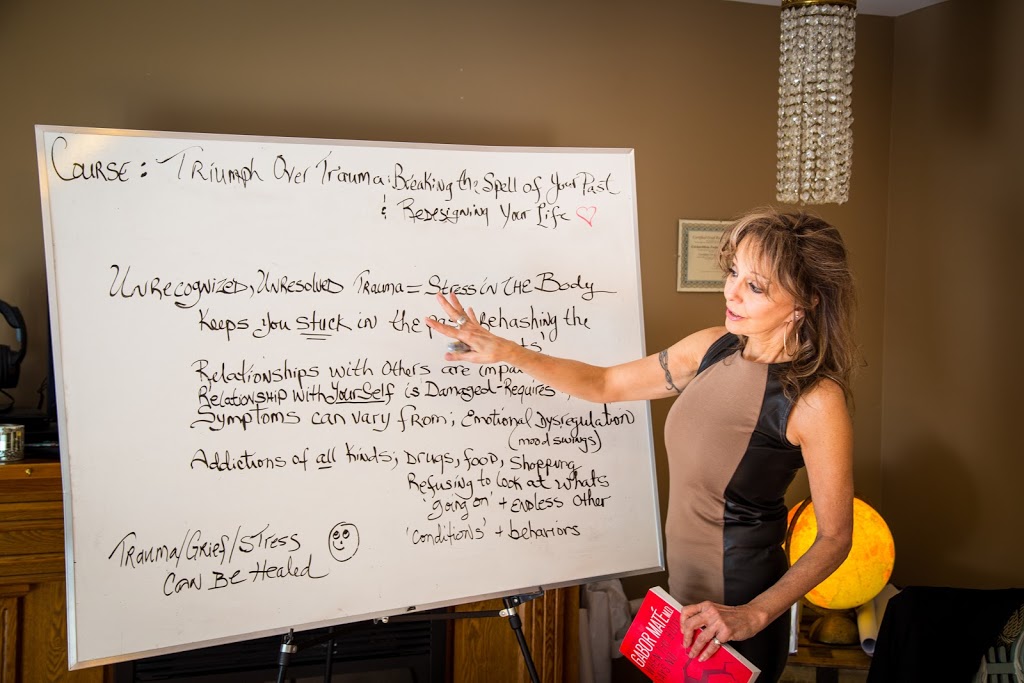 Course: Triumph Over Trauma: Breaking the Spell of Your Past
& Redesigning Your Life
Unrecognized, Unresolved Trauma = Stress in the Body
Keeps you stuck in the past, Rehashing the
Relationships with Others are
Relationship with YourSelf is Damaged-Requires
Symptoms can vary from; Emotional Dysregulation
(mood swings)
Addictions of all Kinds; Drugs, food, shopping
Refusing to look at whats
'going on' + endless other
'conditions' + behaviors
Trauma/Grief/Stress
Can Be Healed
GABOR MATÉ MD